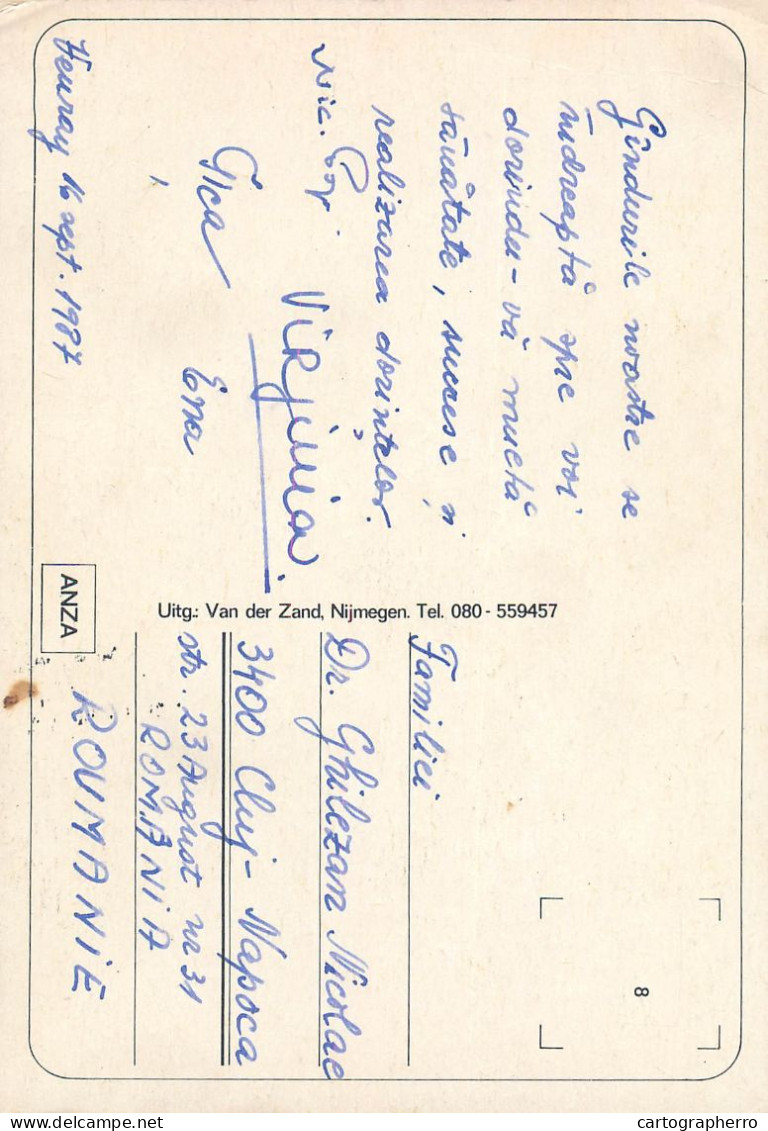 Gîndurile noastre se
îndreaptă spre voi
dorindu-vă multă
sănătate, succese și
realizarea dorințelor.
Virginia
Gica
Ema
Venray 16 sept. 1987
Uitg.: Van der Zand, Nijmegen. Tel. 080 - 559457
ANZA
8
Familiei
Dr. Ghilezan Nicolae
3400 Cluj-Napoca
str. 23 August nr 31
ROMANIA
ROUMANIE
delcampe.net
cartographerro